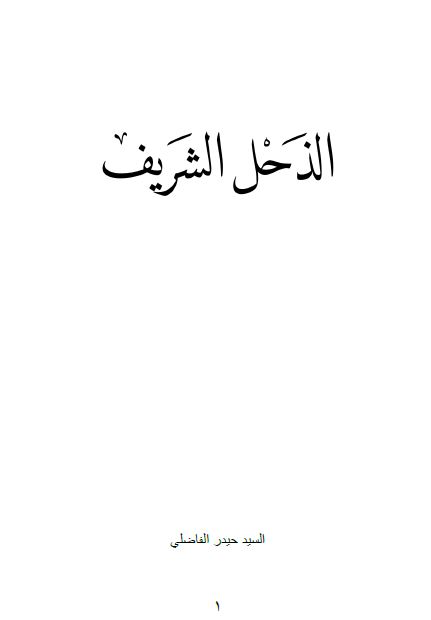 الذَحْل الشَرَيف
السيد حيدر الفاضلي
١